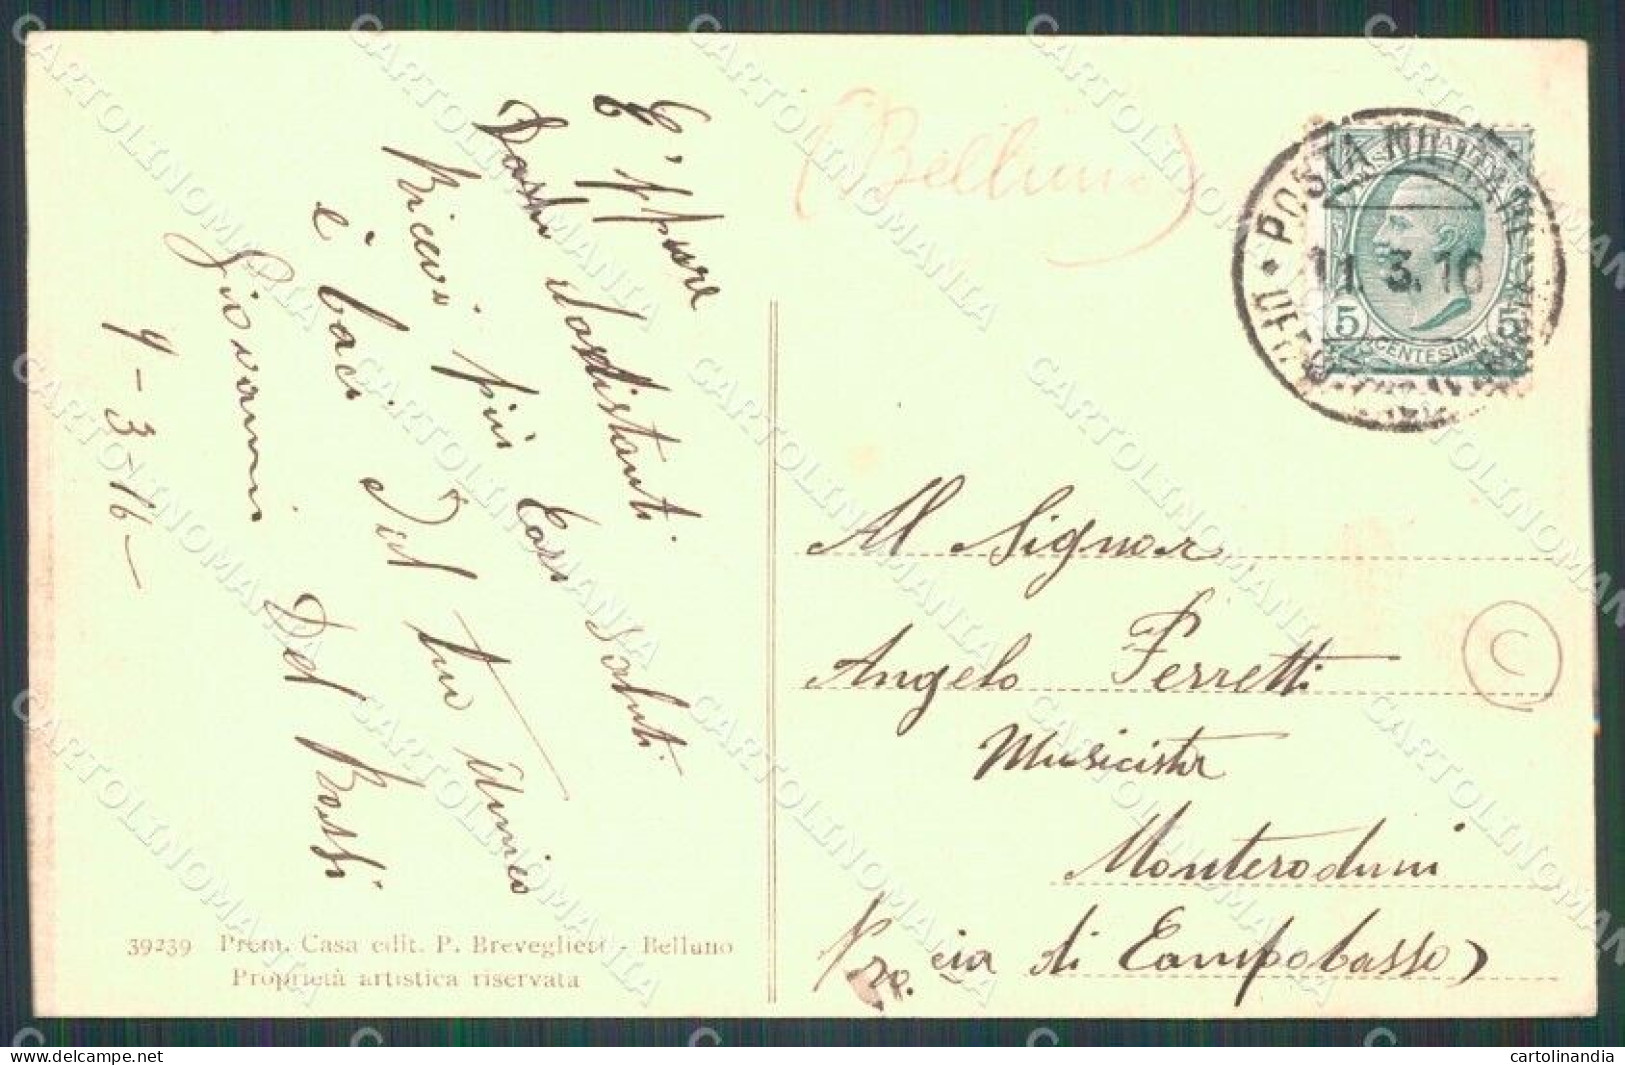 (Belluno)
POSTA MILITARE
11. 3. 16
5 5
CENTESIMI
E' ppure
Dasti distanti.
Ricevi più Cari Saluti
e baci Dal tuo Amico
Giovanni Del Bossi
9-3-16-
Al Signor
Angelo Ferretti
Musicista
Monteroduni
Pro.cia di Campobasso)
C
39239 Prem. Casa edit. P. Breveglieri - Belluno
Proprietà artistica riservata
CARTOLINOMANIA
cartolinandia